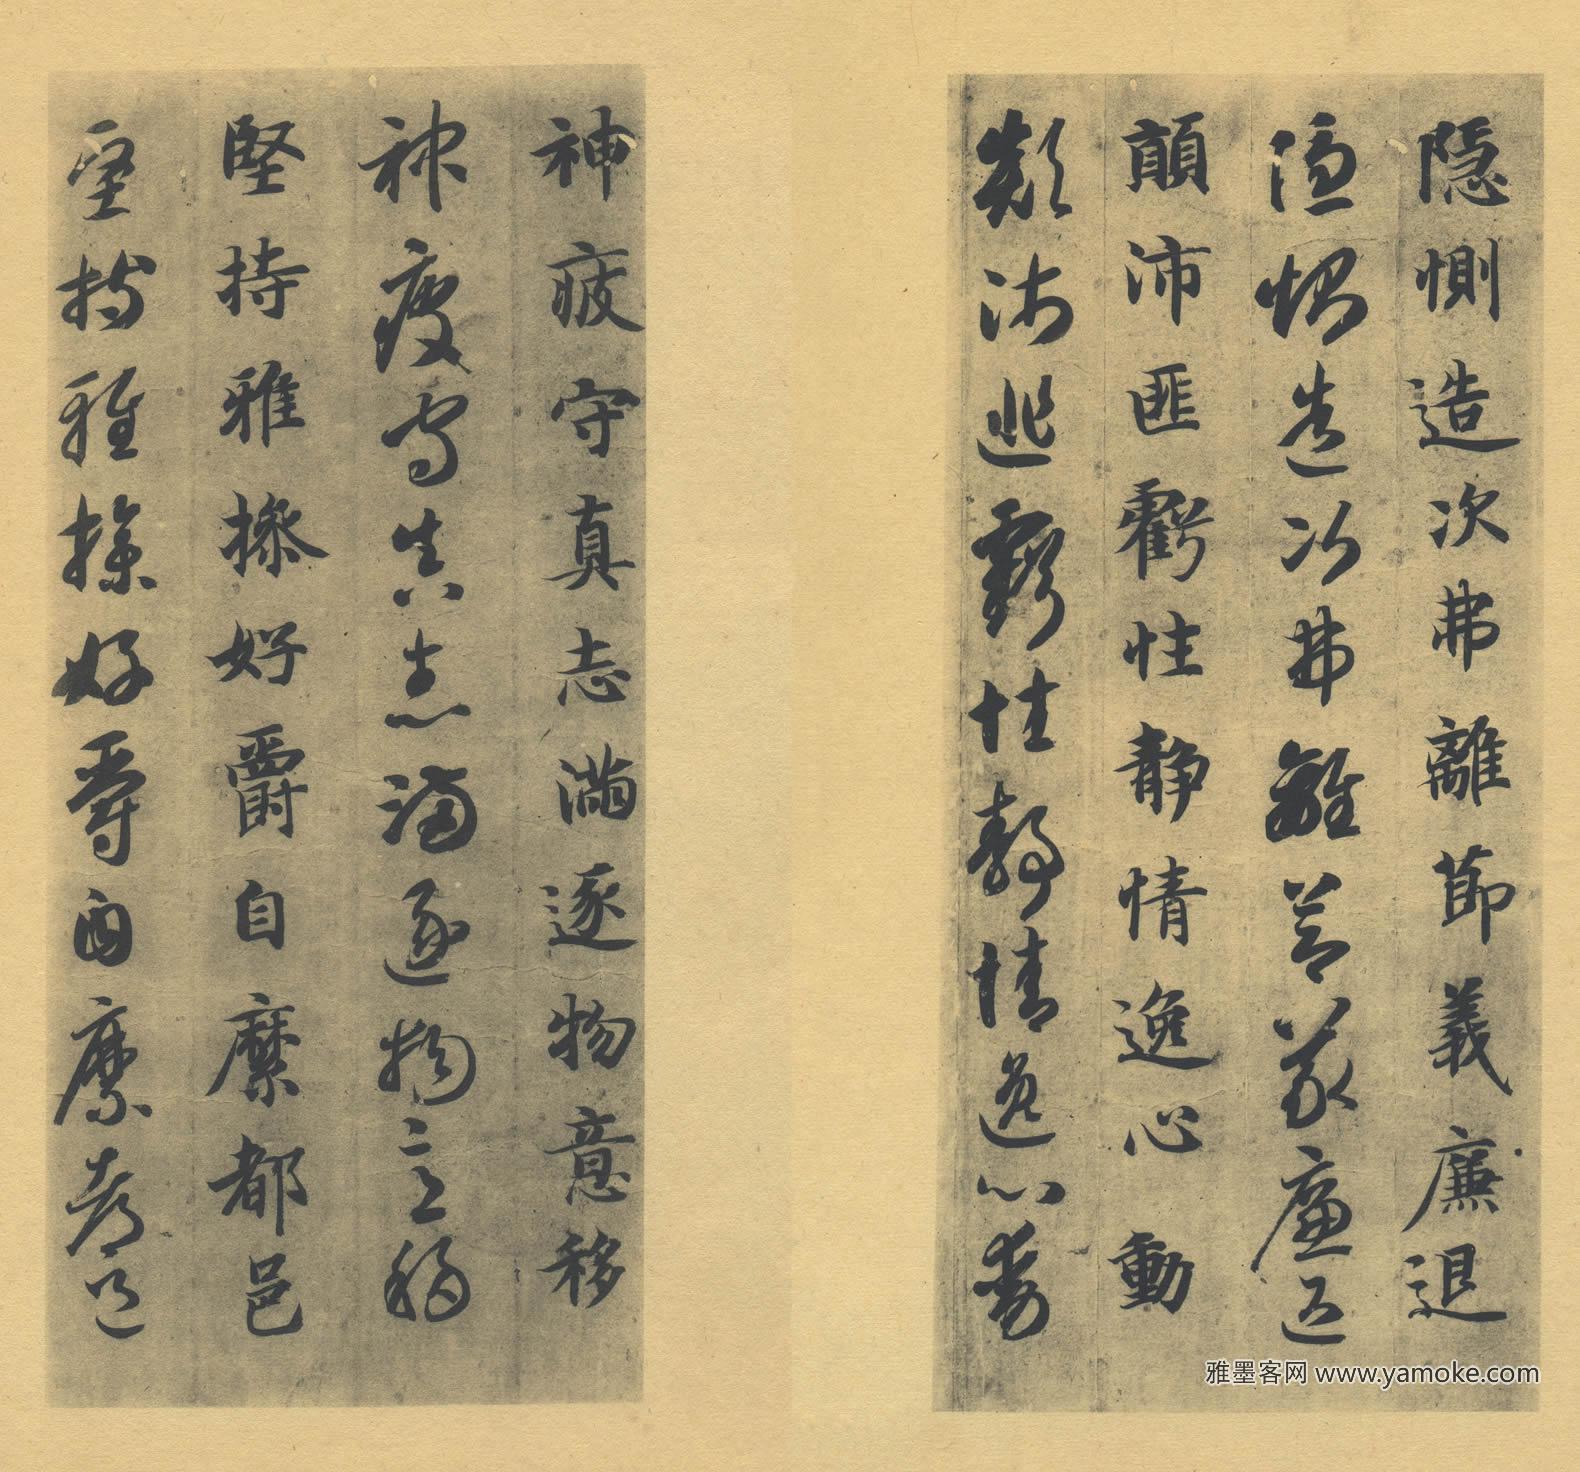 隱惻造次弗離節義廉退
隱惻造次弗離節義廉退
顛沛匪虧性静情逸心動
顛沛匪虧性静情逸心動
神疲守真志滿逐物意移
神疲守真志滿逐物意移
堅持雅操好爵自縻都邑
堅持雅操好爵自縻都邑
雅墨客网 www.yamoke.com